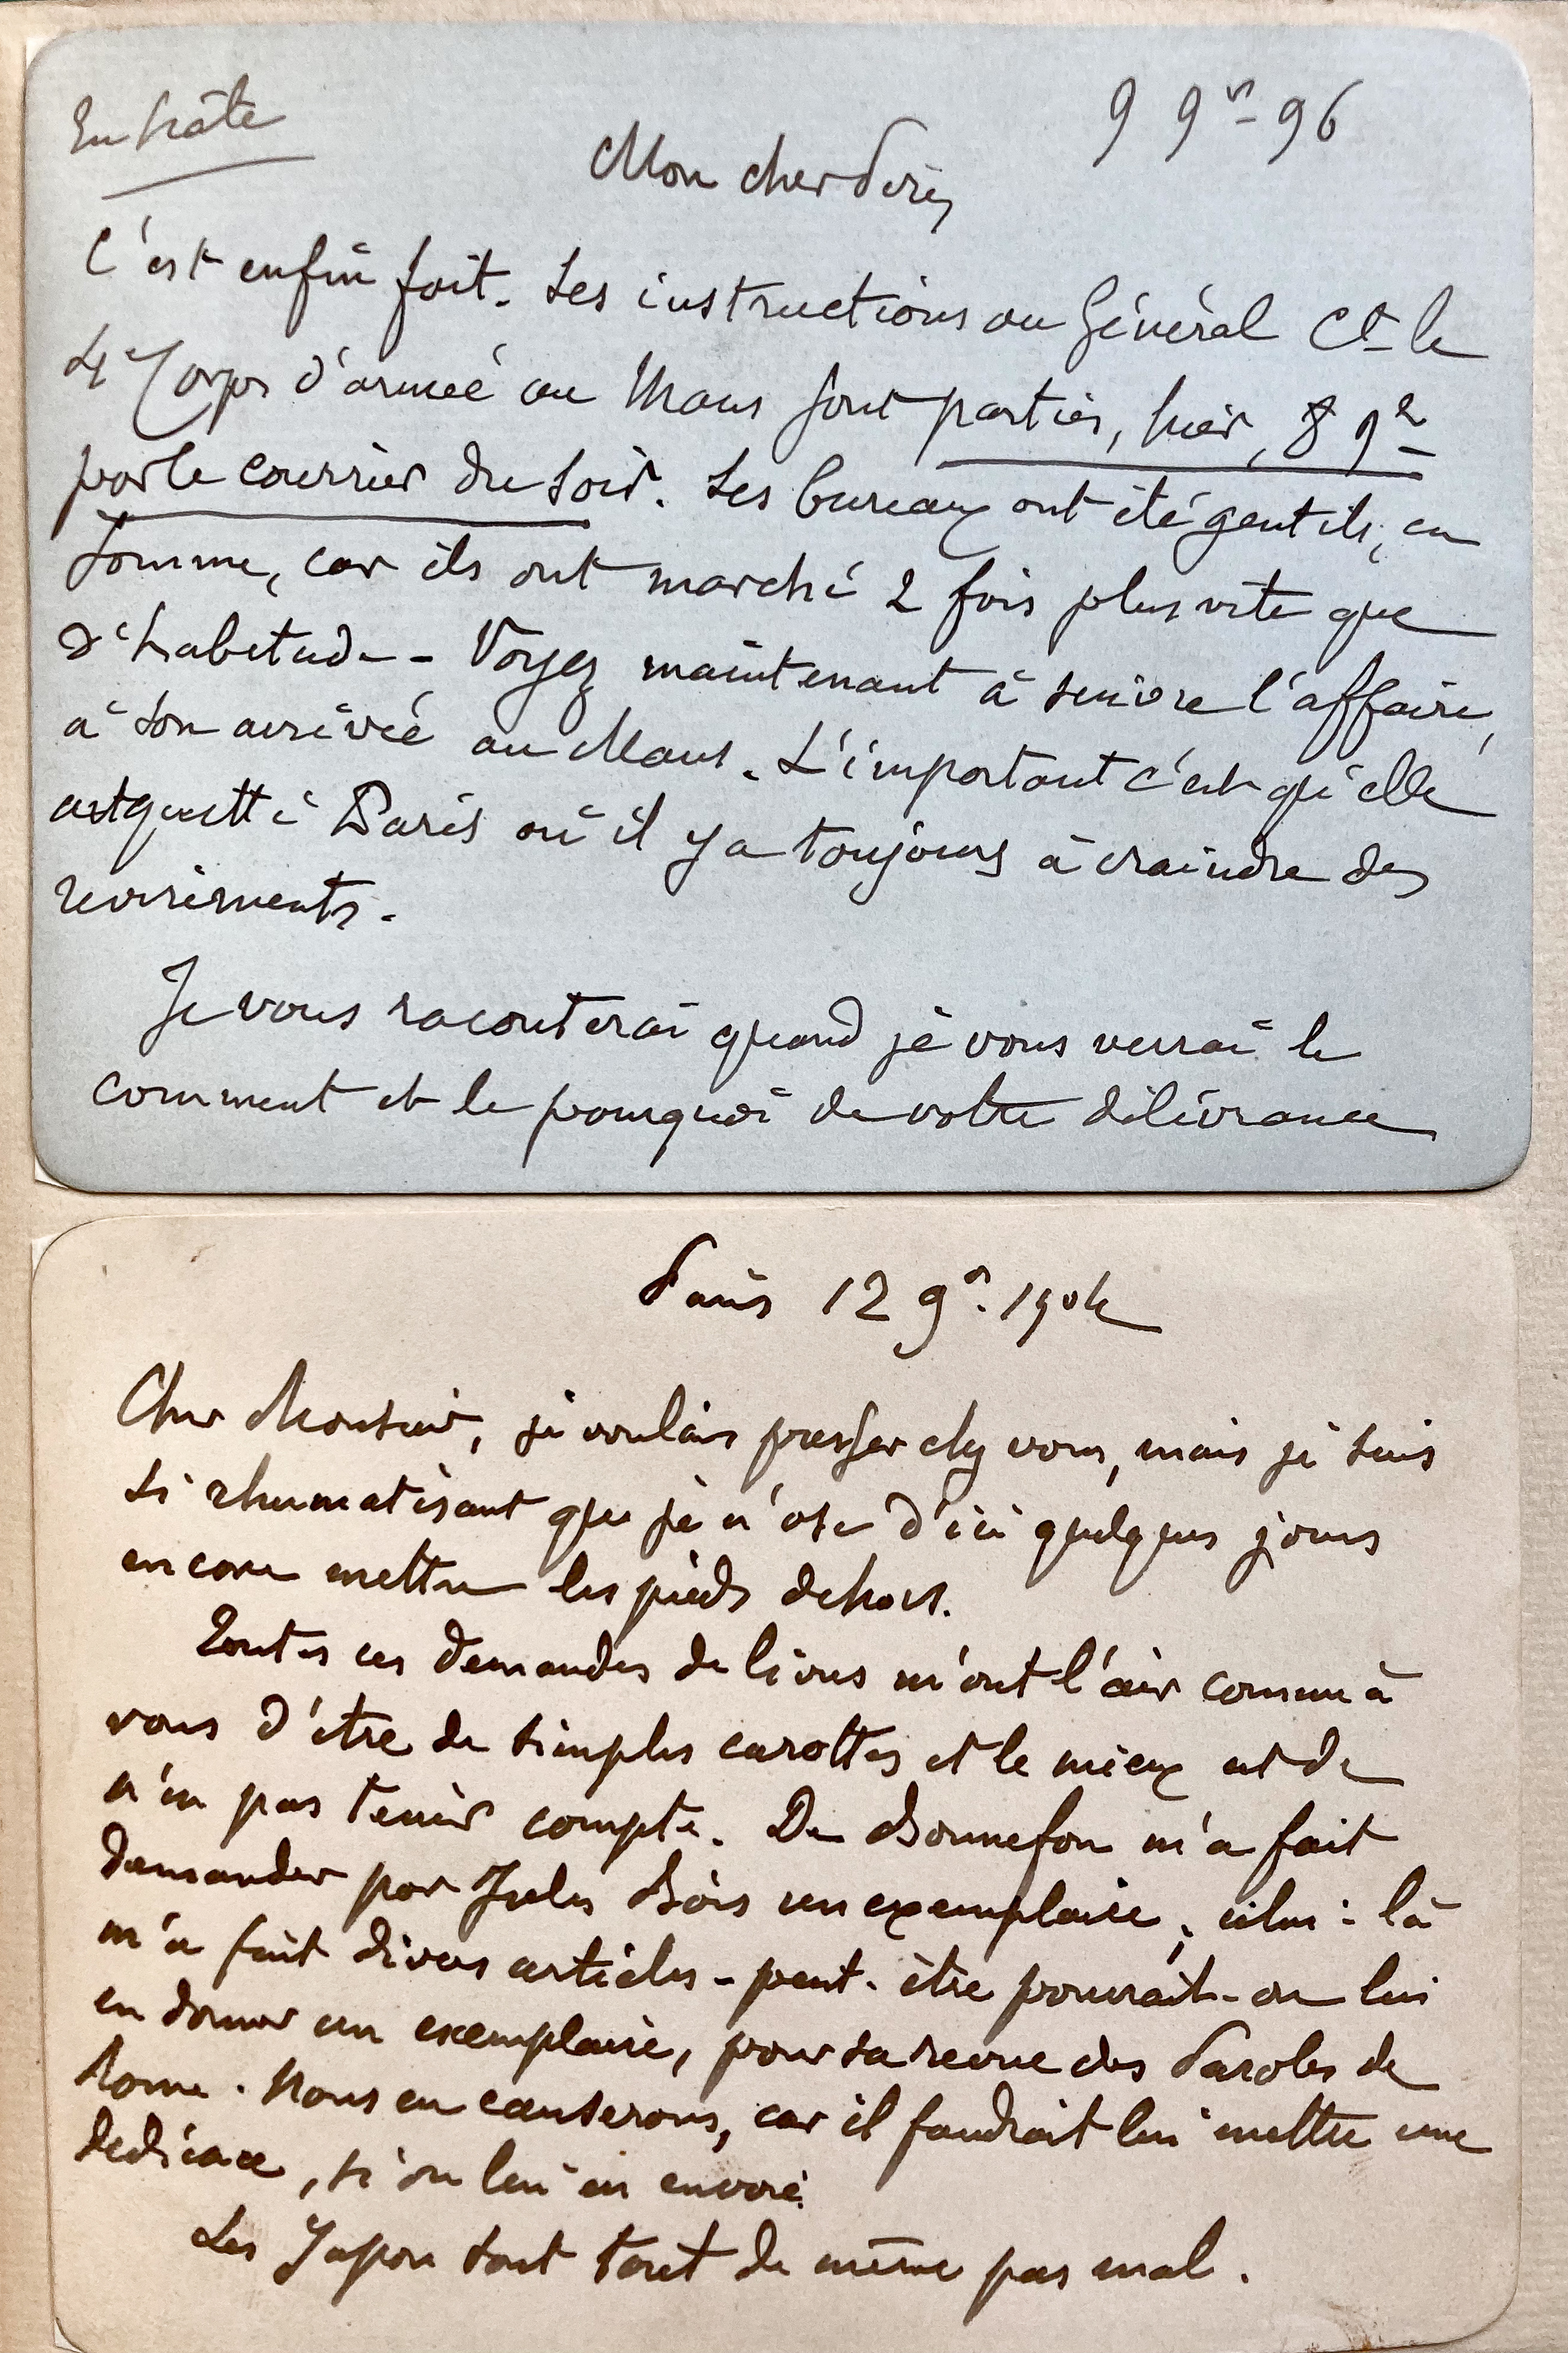 En hâte
9 9bre 96
Mon cher
C'est enfin fait. Les instructions au Général Ct le
4e Corps d'armée au Mans sont parties, hier, 8 9re
par le courrier du soir. Les bureaux ont été gentils, en
somme, car ils ont marché 2 fois plus vite que
d'habitude - Voyez maintenant à suivre l'affaire,
à son arrivée au Mans. L'important c'est qu'elle
ait quitté Paris où il y a toujours à craindre des
revirements.
Je vous raconterai quand je vous verrai le
comment et le pourquoi de votre délivrance
Paris 12 9re. 1904
Cher Monsieur, je voulais passer chez vous, mais je suis
si rhumatisant que je n'ose d'ici quelques jours
encore mettre les pieds dehors.
Toutes ces demandes de livres m'ont l'air comme à
vous d'être de simples carottes et le mieux est de
n'en pas tenir compte. De Bonnefon m'a fait
demander par Jules Bois un exemplaire ; celui-là
m'a fait divers articles - peut-être pourrait-on lui
en donner un exemplaire, pour sa revue des Paroles de
Rome. Nous en causerons, car il faudrait lui mettre une
dédicace, si on lui en envoie.
Les Japon sont tout de même pas mal.